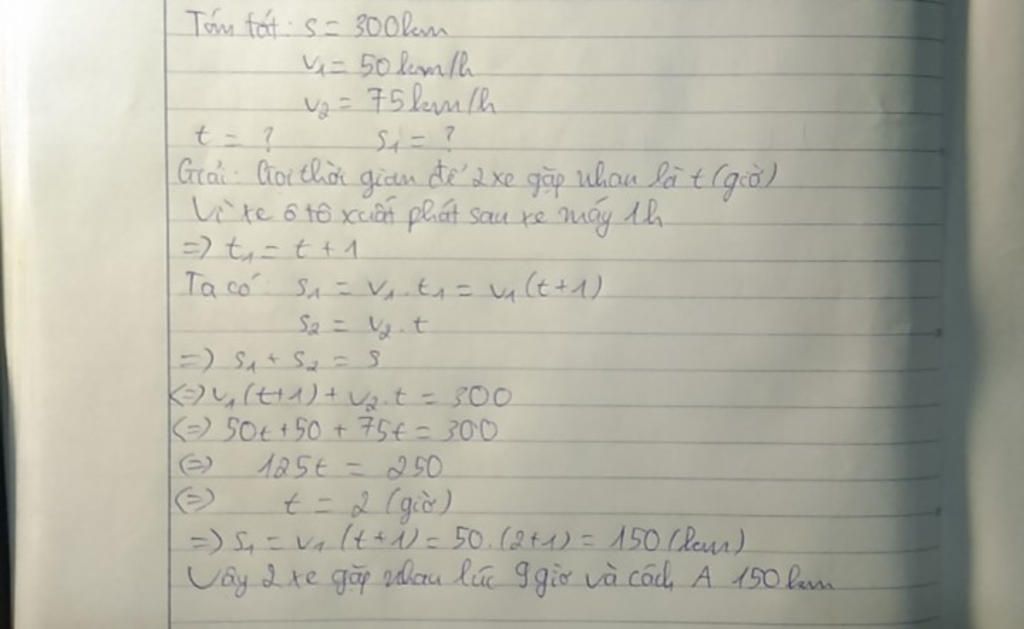 Tóm tắt: s = 300km
v₁ = 50 km/h
v₂ = 75 km/h
t = ? s₁ = ?
Giải: Gọi thời gian để 2 xe gặp nhau là t (giờ)
Vì xe ô tô xuất phát sau xe máy 1h
=> t₁ = t + 1
Ta có: s₁ = v₁ . t₁ = v₁ (t+1)
s₂ = v₂ . t
=> s₁ + s₂ = s
<=> v₁ (t+1) + v₂ . t = 300
<=> 50t + 50 + 75t = 300
<=> 125t = 250
<=> t = 2 (giờ)
=> s₁ = v₁ (t+1) = 50.(2+1) = 150 (km)
Vậy 2 xe gặp nhau lúc 9 giờ và cách A 150 km